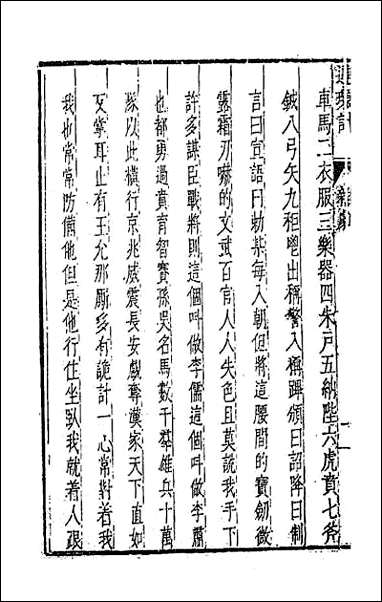 車馬二衣服三樂器四朱戶五納陛六虎賁七斧
鉞八弓矢九秬鬯出稱警入稱蹕頒曰詔降曰制
言曰宣語曰勑某每入朝但將這腰間的寶劒微
露霜那嚇的文武百官人人失色且莫說我手下
許多謀臣戰將則這個呌做李儒這個呌做李肅
也都勇過賁育智賽孫吳名馬數千羣雄兵十萬
隊以此橫行京兆威震長安戲奪漢家天下直如
反掌耳止有王允那厮多有詭計一心常對着我
我也常常防備他但是他行住坐臥我就着人跟
連環計